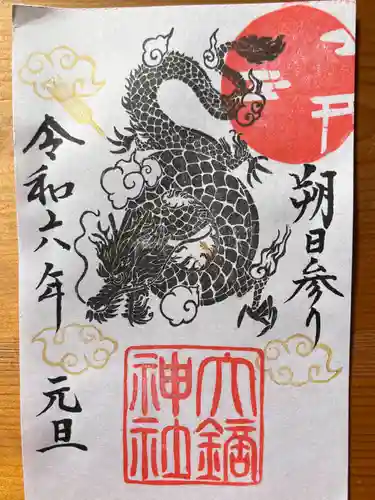 朔日参り
六鏑
神社
令和六年
元旦